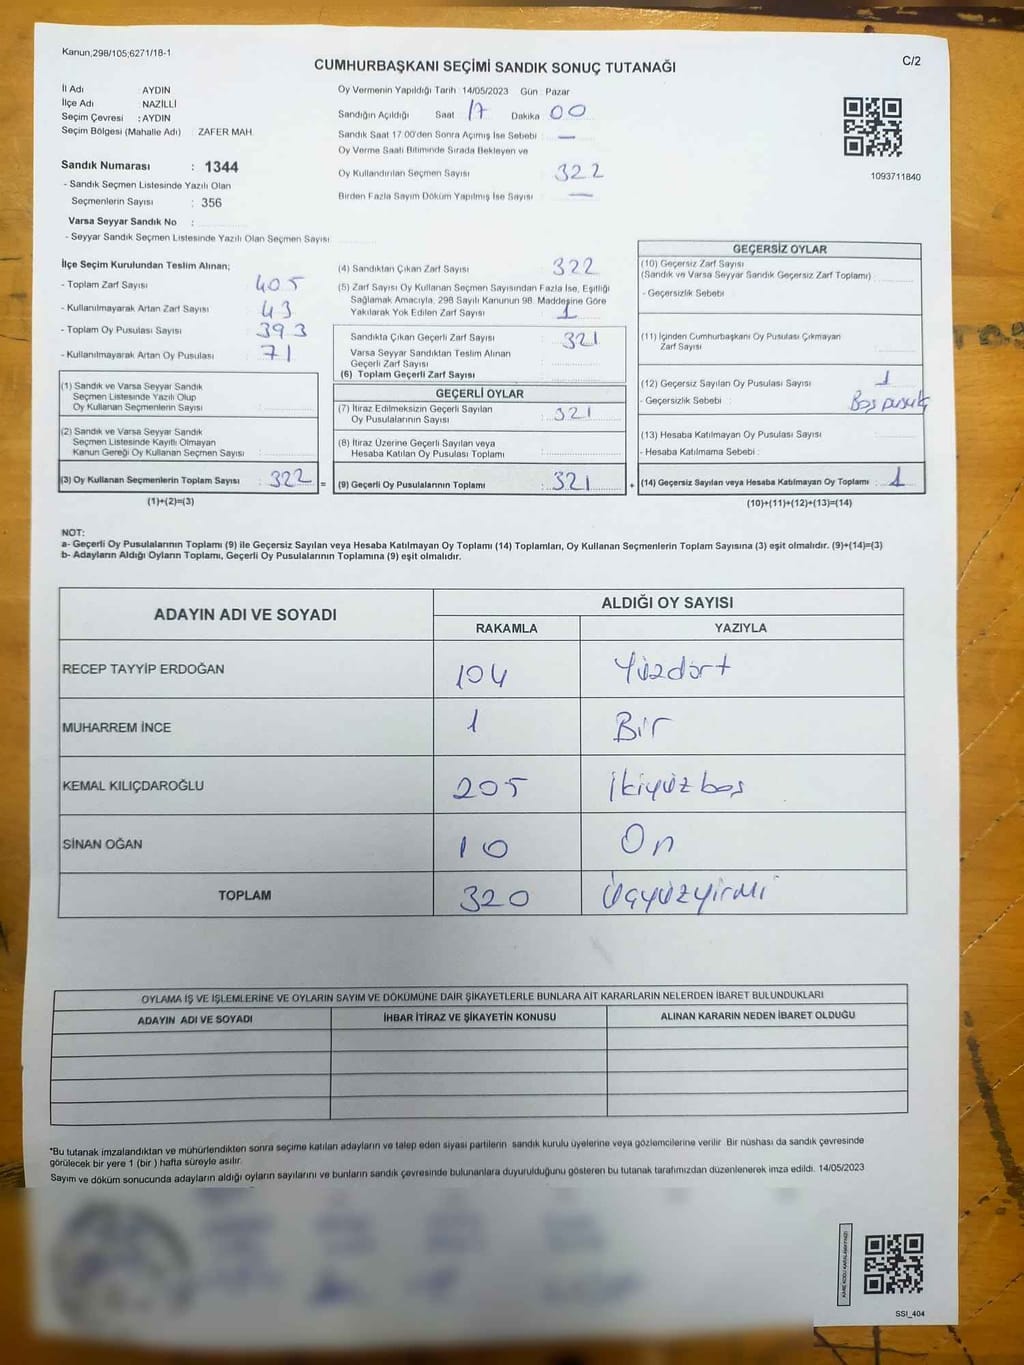 Kanun,298/105;6271/18-1
C/2
CUMHURBAŞKANI SEÇİMİ SANDIK SONUÇ TUTANAĞI
İl Adı AYDIN
İlçe Adı NAZİLLİ
Seçim Çevresi : AYDIN
Seçim Bölgesi (Mahalle Adı) : ZAFER MAH.
Sandık Numarası : 1344
- Sandık Seçmen Listesinde Yazılı Olan
Seçmenlerin Sayısı : 356
Varsa Seyyar Sandık No :
- Seyyar Sandık Seçmen Listesinde Yazılı Olan Seçmen Sayısı
Oy Vermenin Yapıldığı Tarih : 14/05/2023 Gün : Pazar
Sandığın Açıldığı Saat 17 Dakika 00
Sandık Saat 17:00'den Sonra Açımış İse Sebebi : —
Oy Verme Saati Bitiminde Sırada Bekleyen ve
Oy Kullandırılan Seçmen Sayısı 322
Birden Fazla Sayım Döküm Yapılmış İse Sayısı —
1093711840
İlçe Seçim Kurulundan Teslim Alınan;
- Toplam Zarf Sayısı 405
- Kullanılmayarak Artan Zarf Sayısı 43
- Toplam Oy Pusulası Sayısı 393
- Kullanılmayarak Artan Oy Pusulası 71
(1) Sandık ve Varsa Seyyar Sandık
Seçmen Listesinde Yazılı Olup
Oy Kullanan Seçmenlerin Sayısı
(2) Sandık ve Varsa Seyyar Sandık
Seçmen Listesinde Kayıtlı Olmayan
Kanun Gereği Oy Kullanan Seçmen Sayısı
(3) Oy Kullanan Seçmenlerin Toplam Sayısı : 322 =
(1)+(2)=(3)
(4) Sandıktan Çıkan Zarf Sayısı 322
(5) Zarf Sayısı Oy Kullanan Seçmen Sayısından Fazla İse, Eşitliği
Sağlamak Amacıyla, 298 Sayılı Kanunun 98. Maddesine Göre
Yakılarak Yok Edilen Zarf Sayısı 1
Sandıkta Çıkan Geçerli Zarf Sayısı 321
Varsa Seyyar Sandıktan Teslim Alınan
Geçerli Zarf Sayısı
(6) Toplam Geçerli Zarf Sayısı
GEÇERLİ OYLAR
(7) İtiraz Edilmeksizin Geçerli Sayılan
Oy Pusulalarının Sayısı : 321
(8) İtiraz Üzerine Geçerli Sayılan veya
Hesaba Katılan Oy Pusulası Toplamı
(9) Geçerli Oy Pusulalarının Toplamı : 321 +
GEÇERSİZ OYLAR
(10) Geçersiz Zarf Sayısı
(Sandık ve Varsa Seyyar Sandık Geçersiz Zarf Toplamı)
- Geçersizlik Sebebi :
(11) İçinden Cumhurbaşkanı Oy Pusulası Çıkmayan
Zarf Sayısı
(12) Geçersiz Sayılan Oy Pusulası Sayısı 1
- Geçersizlik Sebebi : Boş pusula
(13) Hesaba Katılmayan Oy Pusulası Sayısı
- Hesaba Katılmama Sebebi :
(14) Geçersiz Sayılan veya Hesaba Katılmayan Oy Toplamı : 1
(10)+(11)+(12)+(13)=(14)
NOT:
a- Geçerli Oy Pusulalarının Toplamı (9) ile Geçersiz Sayılan veya Hesaba Katılmayan Oy Toplamı (14) Toplamları, Oy Kullanan Seçmenlerin Toplam Sayısına (3) eşit olmalıdır. (9)+(14)=(3)
b- Adayların Aldığı Oyların Toplamı, Geçerli Oy Pusulalarının Toplamına (9) eşit olmalıdır.
ADAYIN ADI VE SOYADI
ALDIĞI OY SAYISI
RAKAMLA YAZIYLA
RECEP TAYYİP ERDOĞAN 104 Yüzdört
MUHARREM İNCE 1 Bir
KEMAL KILIÇDAROĞLU 205 İkiyüzbeş
SİNAN OĞAN 10 On
TOPLAM 320 Üçyüzyirmi
OYLAMA İŞ VE İŞLEMLERİNE VE OYLARIN SAYIM VE DÖKÜMÜNE DAİR ŞİKAYETLERLE BUNLARA AİT KARARLARIN NELERDEN İBARET BULUNDUKLARI
ADAYIN ADI VE SOYADI İHBAR İTİRAZ VE ŞİKAYETİN KONUSU ALINAN KARARIN NEDEN İBARET OLDUĞU
*Bu tutanak imzalandıktan ve mühürlendikten sonra seçime katılan adayların ve talep eden siyasi partilerin sandık kurulu üyelerine veya gözlemcilerine verilir. Bir nüshası da sandık çevresinde
görülecek bir yere 1 (bir ) hafta süreyle asılır.
Sayım ve döküm sonucunda adayların aldığı oyların sayılarını ve bunların sandık çevresinde bulunanlara duyurulduğunu gösteren bu tutanak tarafımızdan düzenlenerek imza edildi. 14/05/2023
SSI_404